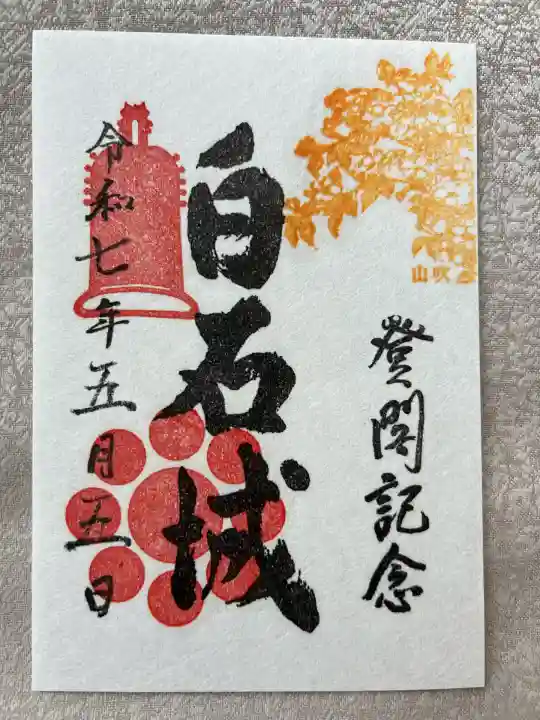 山吹
登閣記念
白石城
令和七年五月五日